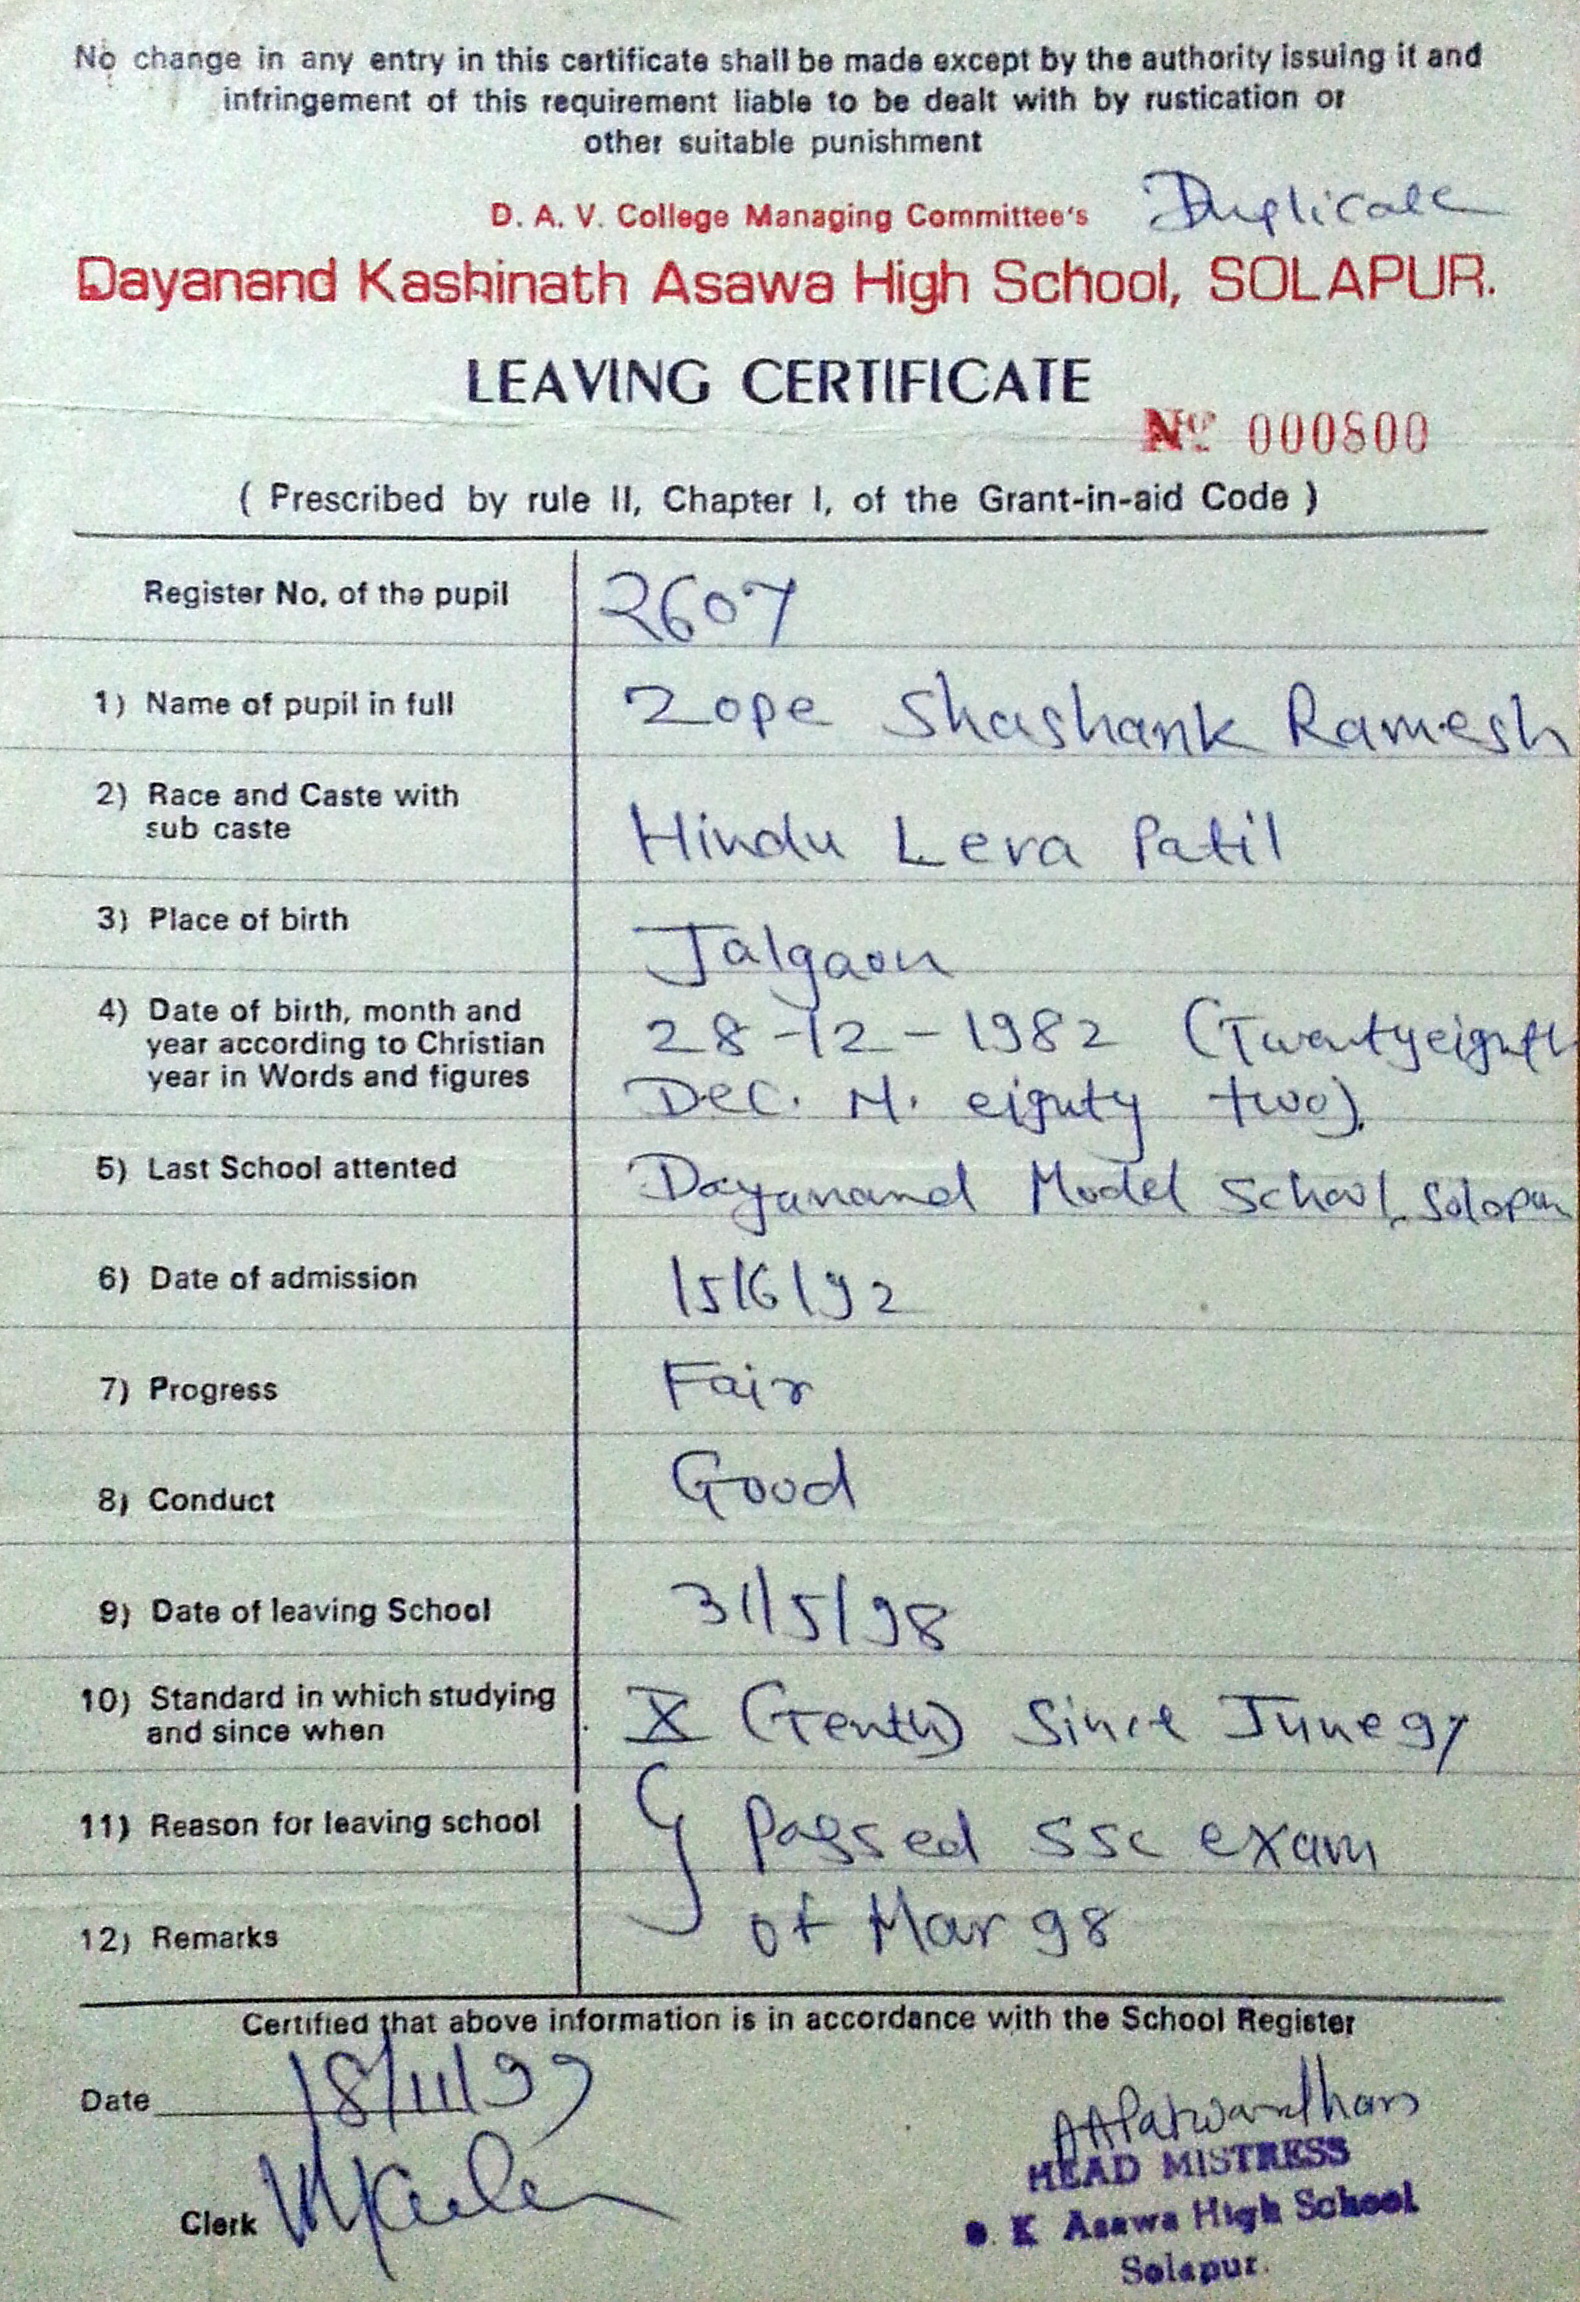 No change in any entry in this certificate shall be made except by the authority issuing it and
infringement of this requirement liable to be dealt with by rustication or
other suitable punishment
Duplicate
D. A. V. College Managing Committee's
Dayanand Kashinath Asawa High School, SOLAPUR.
LEAVING CERTIFICATE
Nº 000800
( Prescribed by rule II, Chapter I, of the Grant-in-aid Code )
Register No. of the pupil 2607
1) Name of pupil in full Zope Shashank Ramesh
2) Race and Caste with
sub caste Hindu Leva Patil
3) Place of birth Jalgaon
4) Date of birth, month and
year according to Christian
year in Words and figures
28-12-1982 (Twentyeighth
Dec. N. eighty two).
5) Last School attented Dayanand Model School, Solapur
6) Date of admission 15/6/92
7) Progress Fair
8) Conduct Good
9) Date of leaving School 31/5/98
10) Standard in which studying
and since when X (Tenth) Since June 97
11) Reason for leaving school Passed SSC exam
12) Remarks of Mar 98
Certified that above information is in accordance with the School Register
Date 18/11/99
Clerk
AAPatwardhan
HEAD MISTRESS
D. K Asawa High School
Solapur.